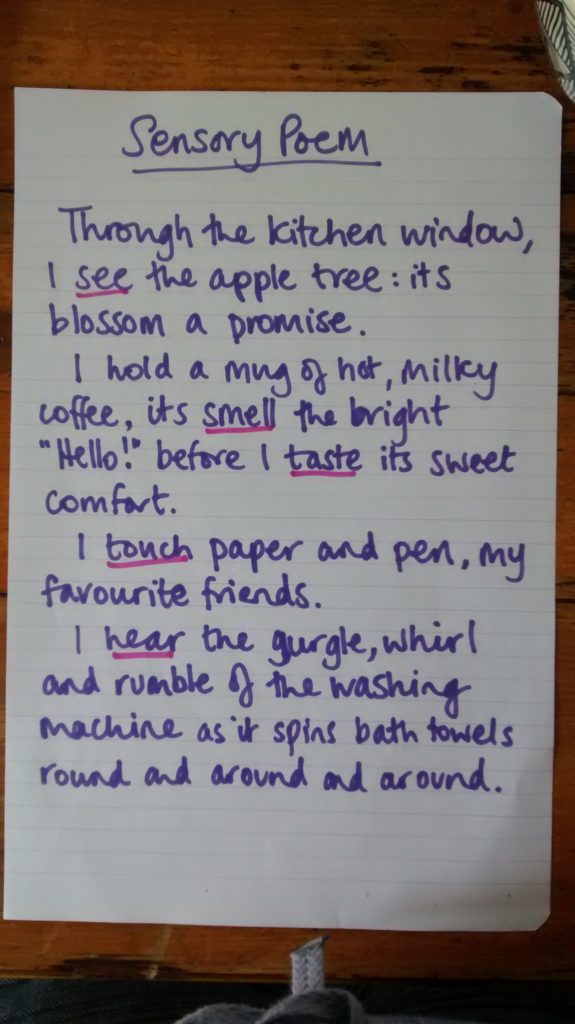 Sensory Poem
Through the kitchen window,
I see the apple tree: its
blossom a promise.
I hold a mug of hot, milky
coffee, its smell the bright
"Hello!" before I taste its sweet
comfort.
I touch paper and pen, my
favourite friends.
I hear the gurgle, whirl
and rumble of the washing
machine as it spins bath towels
round and around and around.